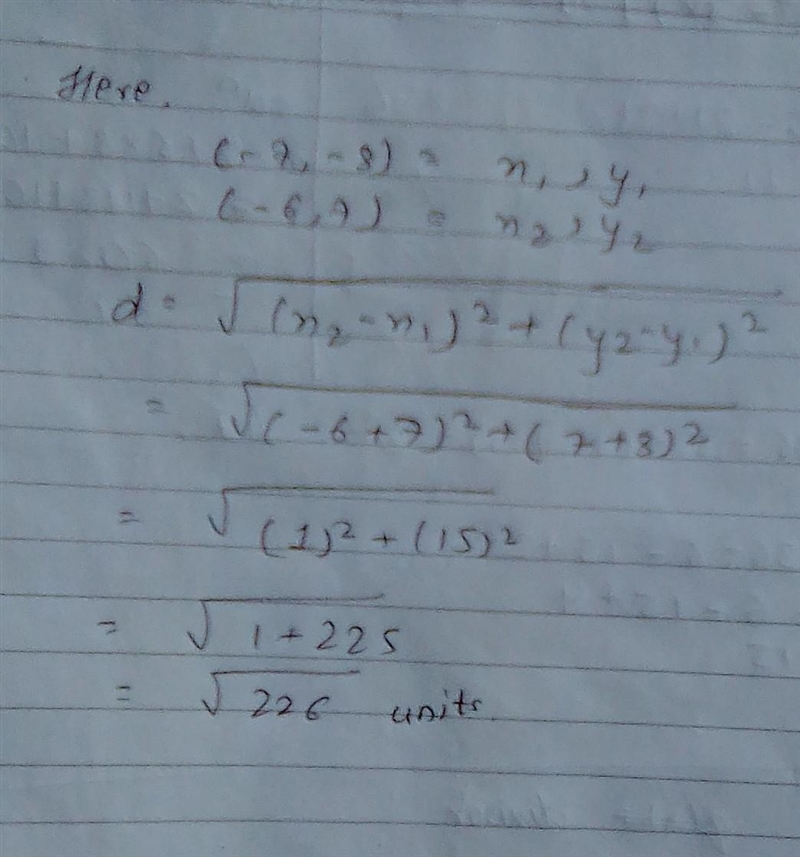 Here,
(-7, -8) = x₁, y₁
(-6, 7) = x₂, y₂
d = √(x₂ - x₁)² + (y₂ - y₁)²
= √(-6 + 7)² + (7 + 8)²
= √(1)² + (15)²
= √1 + 225
= √226 units